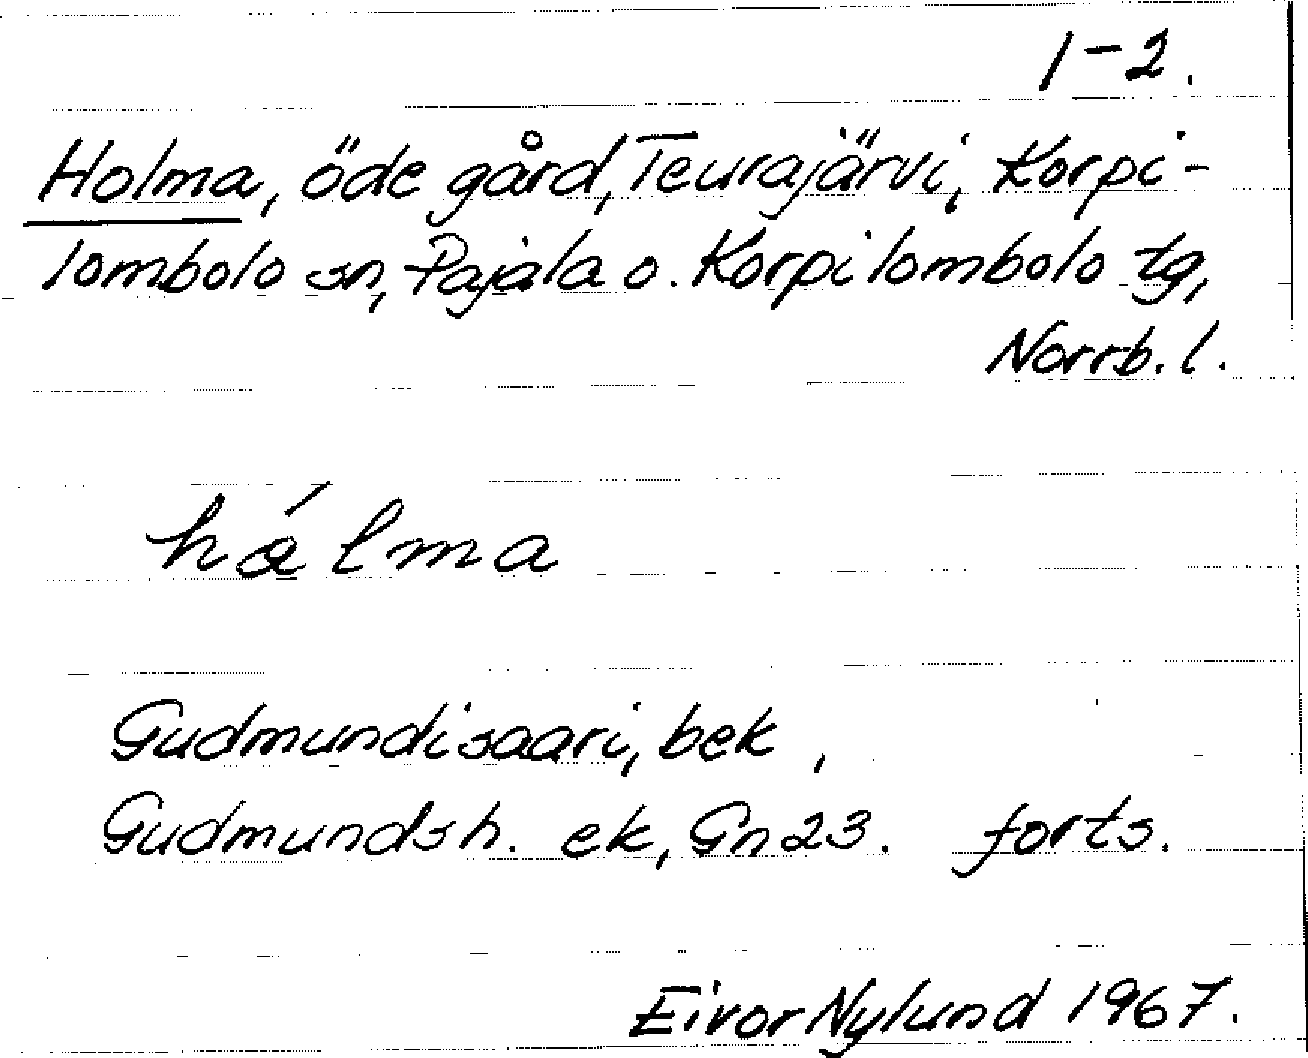 1-2.
Holma, öde gård, Teurajärvi, Korpi-
lombolo sn, Pajala o. Korpilombolo tg,
Norrb. l.
hålma
Gudmundisaari, bek,
Gudmundsh. ek, Gn 23. forts.
Eivor Nylund 1967.